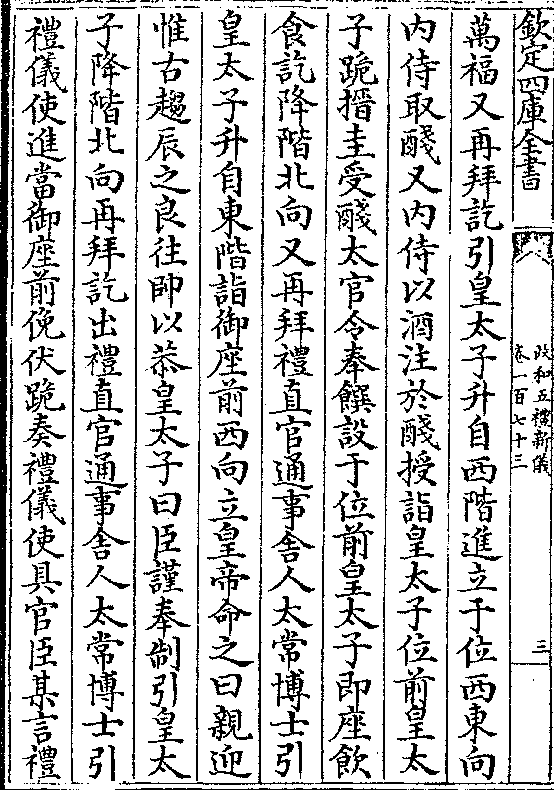 欽定四庫全書
政和五禮新儀
卷一百七十三
三
萬福又再拜訖引皇太子升自西階進立于位西東向
内侍取醆又内侍以酒注於醆授詣皇太子位前皇太
子跪搢圭受醆太官令奉饌設于位前皇太子即座飲
食訖降階北向又再拜禮直官通事舍人太常博士引
皇太子升自東階詣御座前西向立皇帝命之曰親迎
惟古趨辰之良往帥以恭皇太子曰臣謹奉制引皇太
子降階北向再拜訖出禮直官通事舍人太常博士引
禮儀使進當御座前俛伏跪奏禮儀使具官臣某言禮